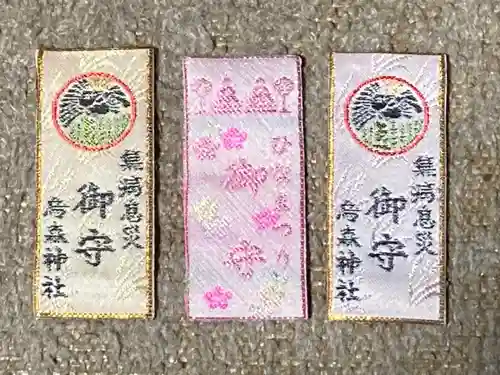 無病息災
御守
烏森神社
ひなまつり
無病息災
御守
烏森神社